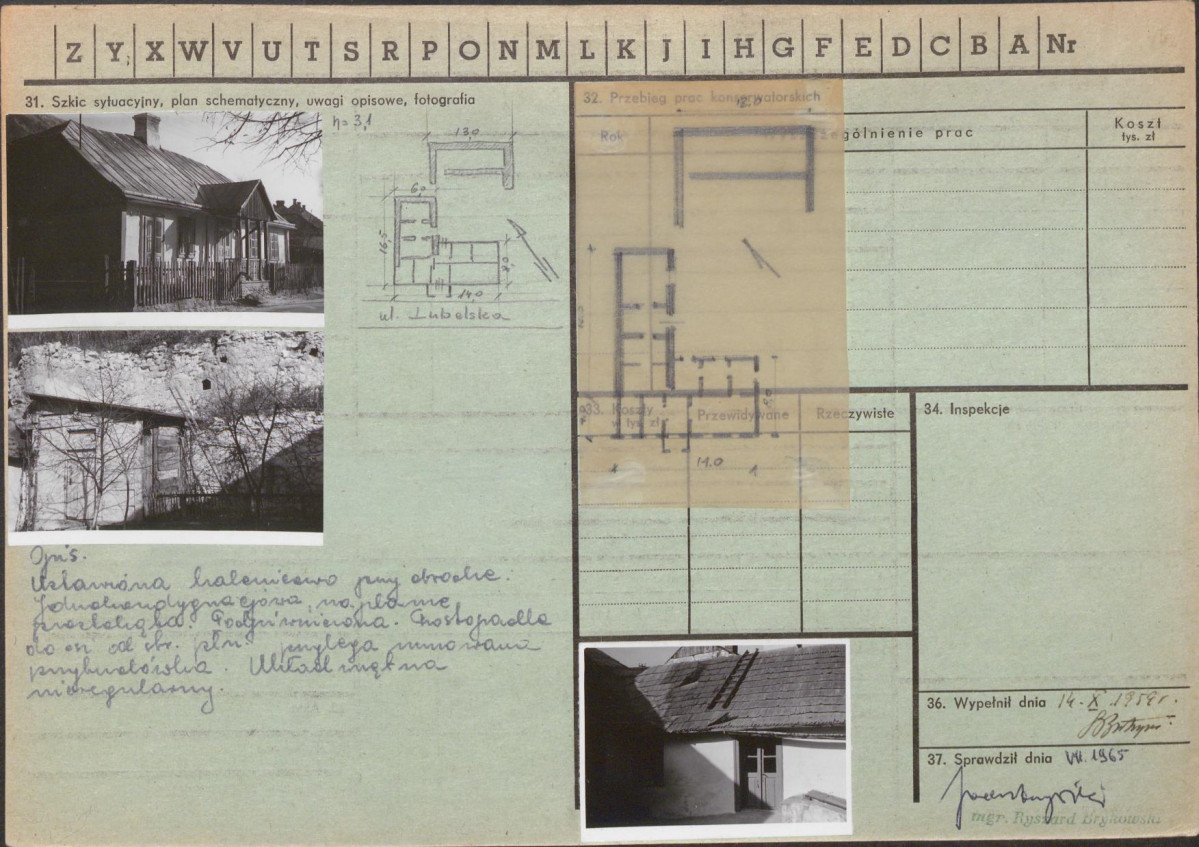 Z Y X W V U T S R P O N M L K J I H G F E D C B A Nr
31. Szkic sytuacyjny, plan schematyczny, uwagi opisowe, fotografia
h = 3,1
13,0
6,0
16,5
9,0
14,0
ul. Lubelska
Opis.
Ustawiona kalenicowo przy drodze.
Jednokondygnacjowa, na planie
prostokąta. Podpiwniczona. Prostopadle
do str. płn. przylega murowana
przybudówka. Układ wnętrza
nieregularny.
32. Przebieg prac konserwatorskich
Rok
ególnienie prac
Koszt
tys. zł
14.0
33. Koszty
w tys. zł
Przewidywane
Rzeczywiste
34. Inspekcje
36. Wypełnił dnia 14. X. 1959 r.
37. Sprawdził dnia VII. 1965
mgr. Ryszard Brykowski